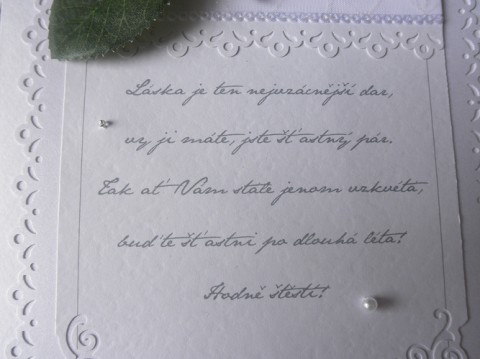 Láska je ten nejvzácnější dar,
vy ji máte, jste šťastný pár.
Tak ať Vám stále jenom vzkvétá,
buďte šťastni po dlouhá léta!
Hodně štěstí!